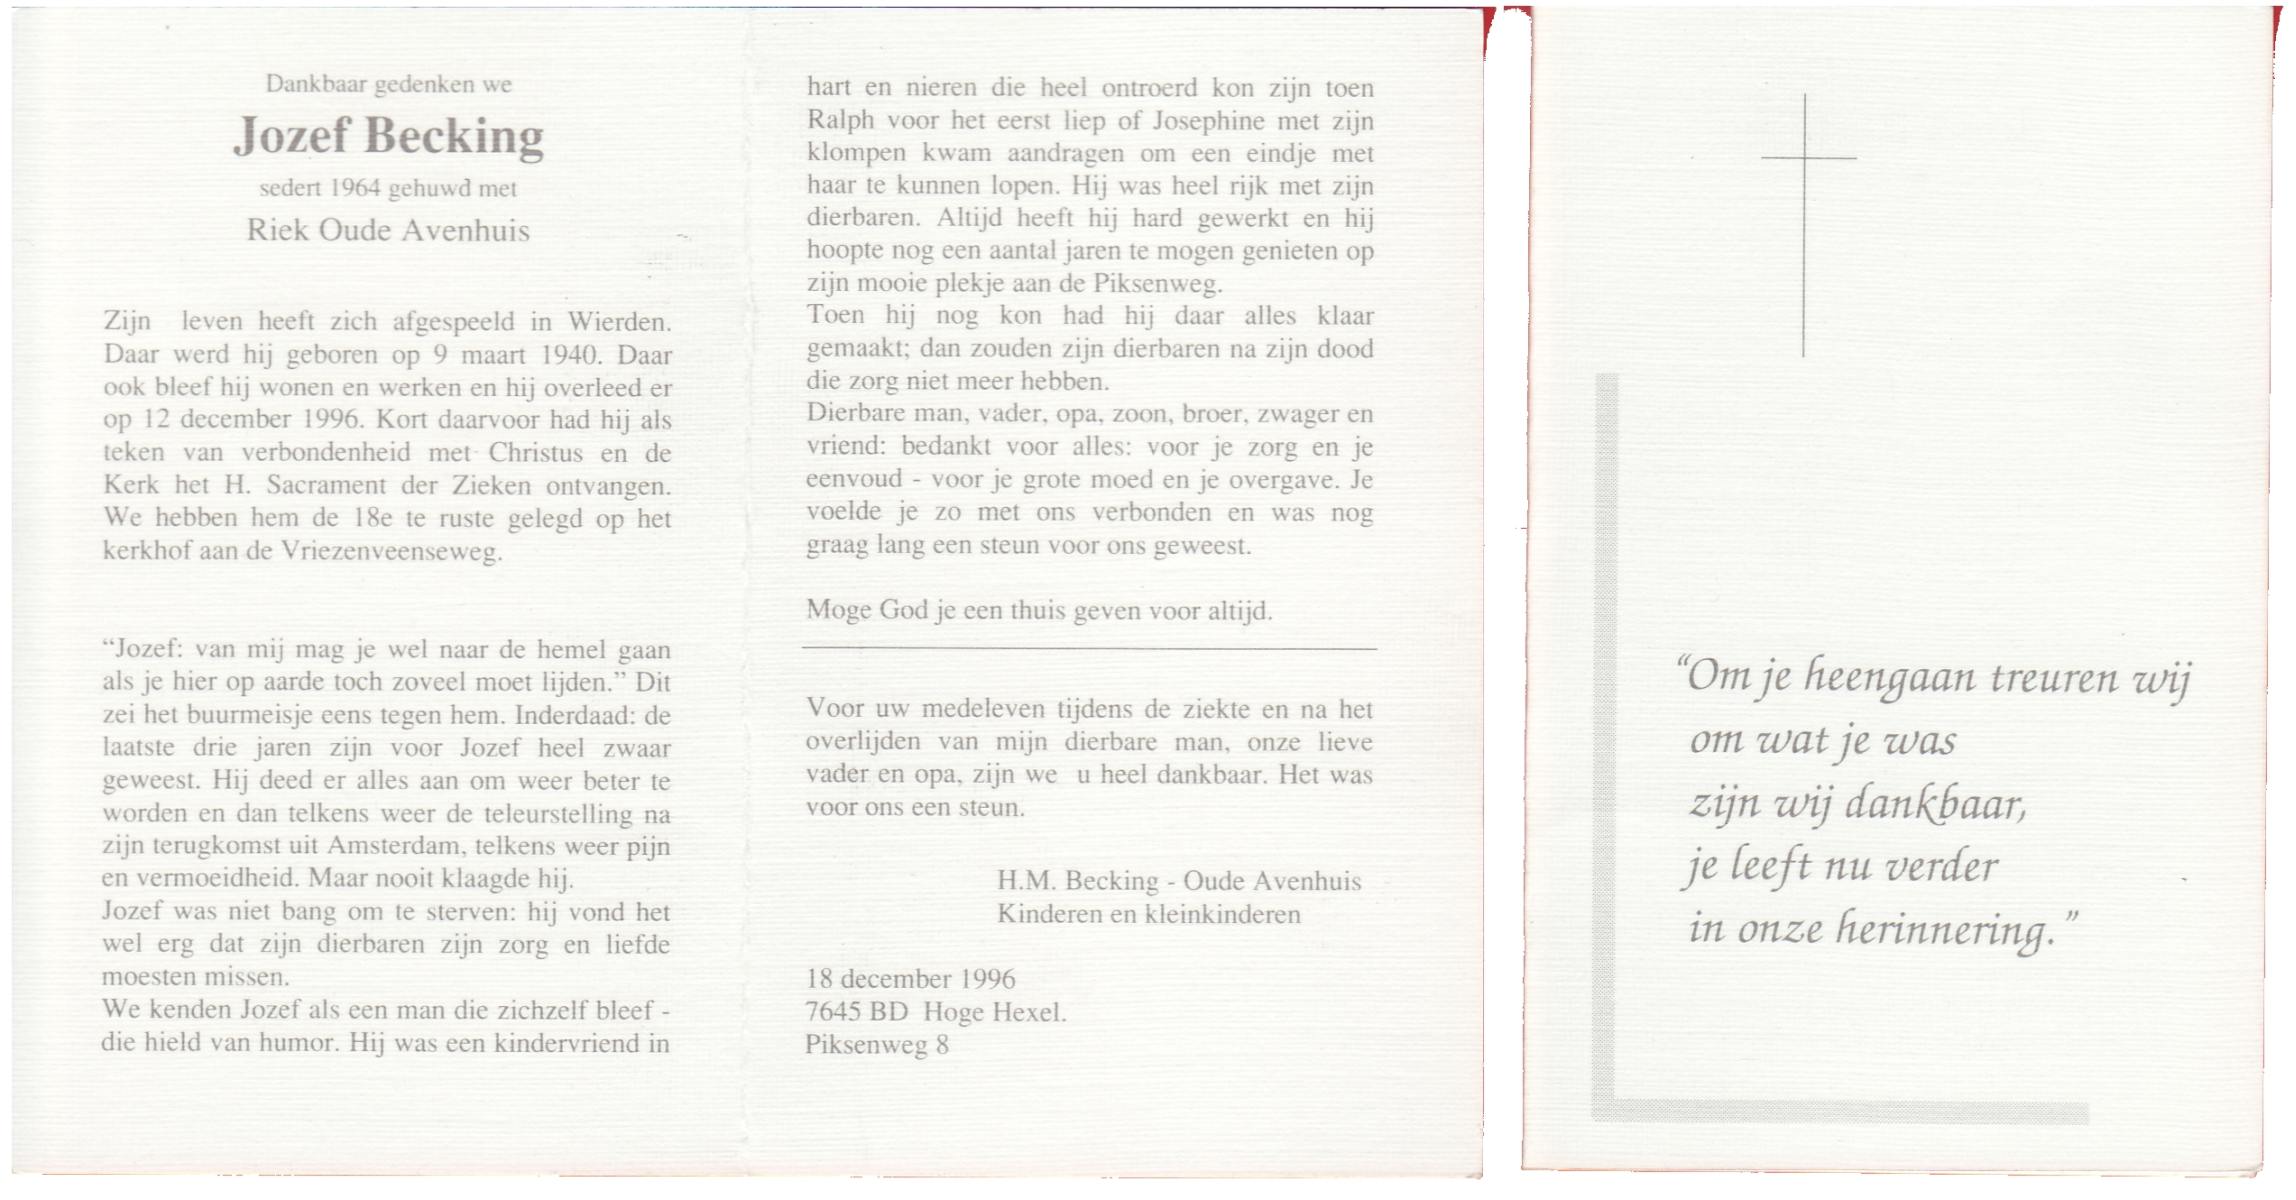 Dankbaar gedenken we
Jozef Becking
sedert 1964 gehuwd met
Riek Oude Avenhuis
Zijn leven heeft zich afgespeeld in Wierden.
Daar werd hij geboren op 9 maart 1940. Daar
ook bleef hij wonen en werken en hij overleed er
op 12 december 1996. Kort daarvoor had hij als
teken van verbondenheid met Christus en de
Kerk het H. Sacrament der Zieken ontvangen.
We hebben hem de 18e te ruste gelegd op het
kerkhof aan de Vriezenveenseweg.
“Jozef: van mij mag je wel naar de hemel gaan
als je hier op aarde toch zoveel moet lijden.” Dit
zei het buurmeisje eens tegen hem. Inderdaad: de
laatste drie jaren zijn voor Jozef heel zwaar
geweest. Hij deed er alles aan om weer beter te
worden en dan telkens weer de teleurstelling na
zijn terugkomst uit Amsterdam, telkens weer pijn
en vermoeidheid. Maar nooit klaagde hij.
Jozef was niet bang om te sterven: hij vond het
wel erg dat zijn dierbaren zijn zorg en liefde
moesten missen.
We kenden Jozef als een man die zichzelf bleef -
die hield van humor. Hij was een kindervriend in
hart en nieren die heel ontroerd kon zijn toen
Ralph voor het eerst liep of Josephine met zijn
klompen kwam aandragen om een eindje met
haar te kunnen lopen. Hij was heel rijk met zijn
dierbaren. Altijd heeft hij hard gewerkt en hij
hoopte nog een aantal jaren te mogen genieten op
zijn mooie plekje aan de Piksenweg.
Toen hij nog kon had hij daar alles klaar
gemaakt; dan zouden zijn dierbaren na zijn dood
die zorg niet meer hebben.
Dierbare man, vader, opa, zoon, broer, zwager en
vriend: bedankt voor alles: voor je zorg en je
eenvoud - voor je grote moed en je overgave. Je
voelde je zo met ons verbonden en was nog
graag lang een steun voor ons geweest.
Moge God je een thuis geven voor altijd.
Voor uw medeleven tijdens de ziekte en na het
overlijden van mijn dierbare man, onze lieve
vader en opa, zijn we u heel dankbaar. Het was
voor ons een steun.
H.M. Becking - Oude Avenhuis
Kinderen en kleinkinderen
18 december 1996
7645 BD Hoge Hexel.
Piksenweg 8
“Om je heengaan treuren wij
om wat je was
zijn wij dankbaar,
je leeft nu verder
in onze herinnering.”